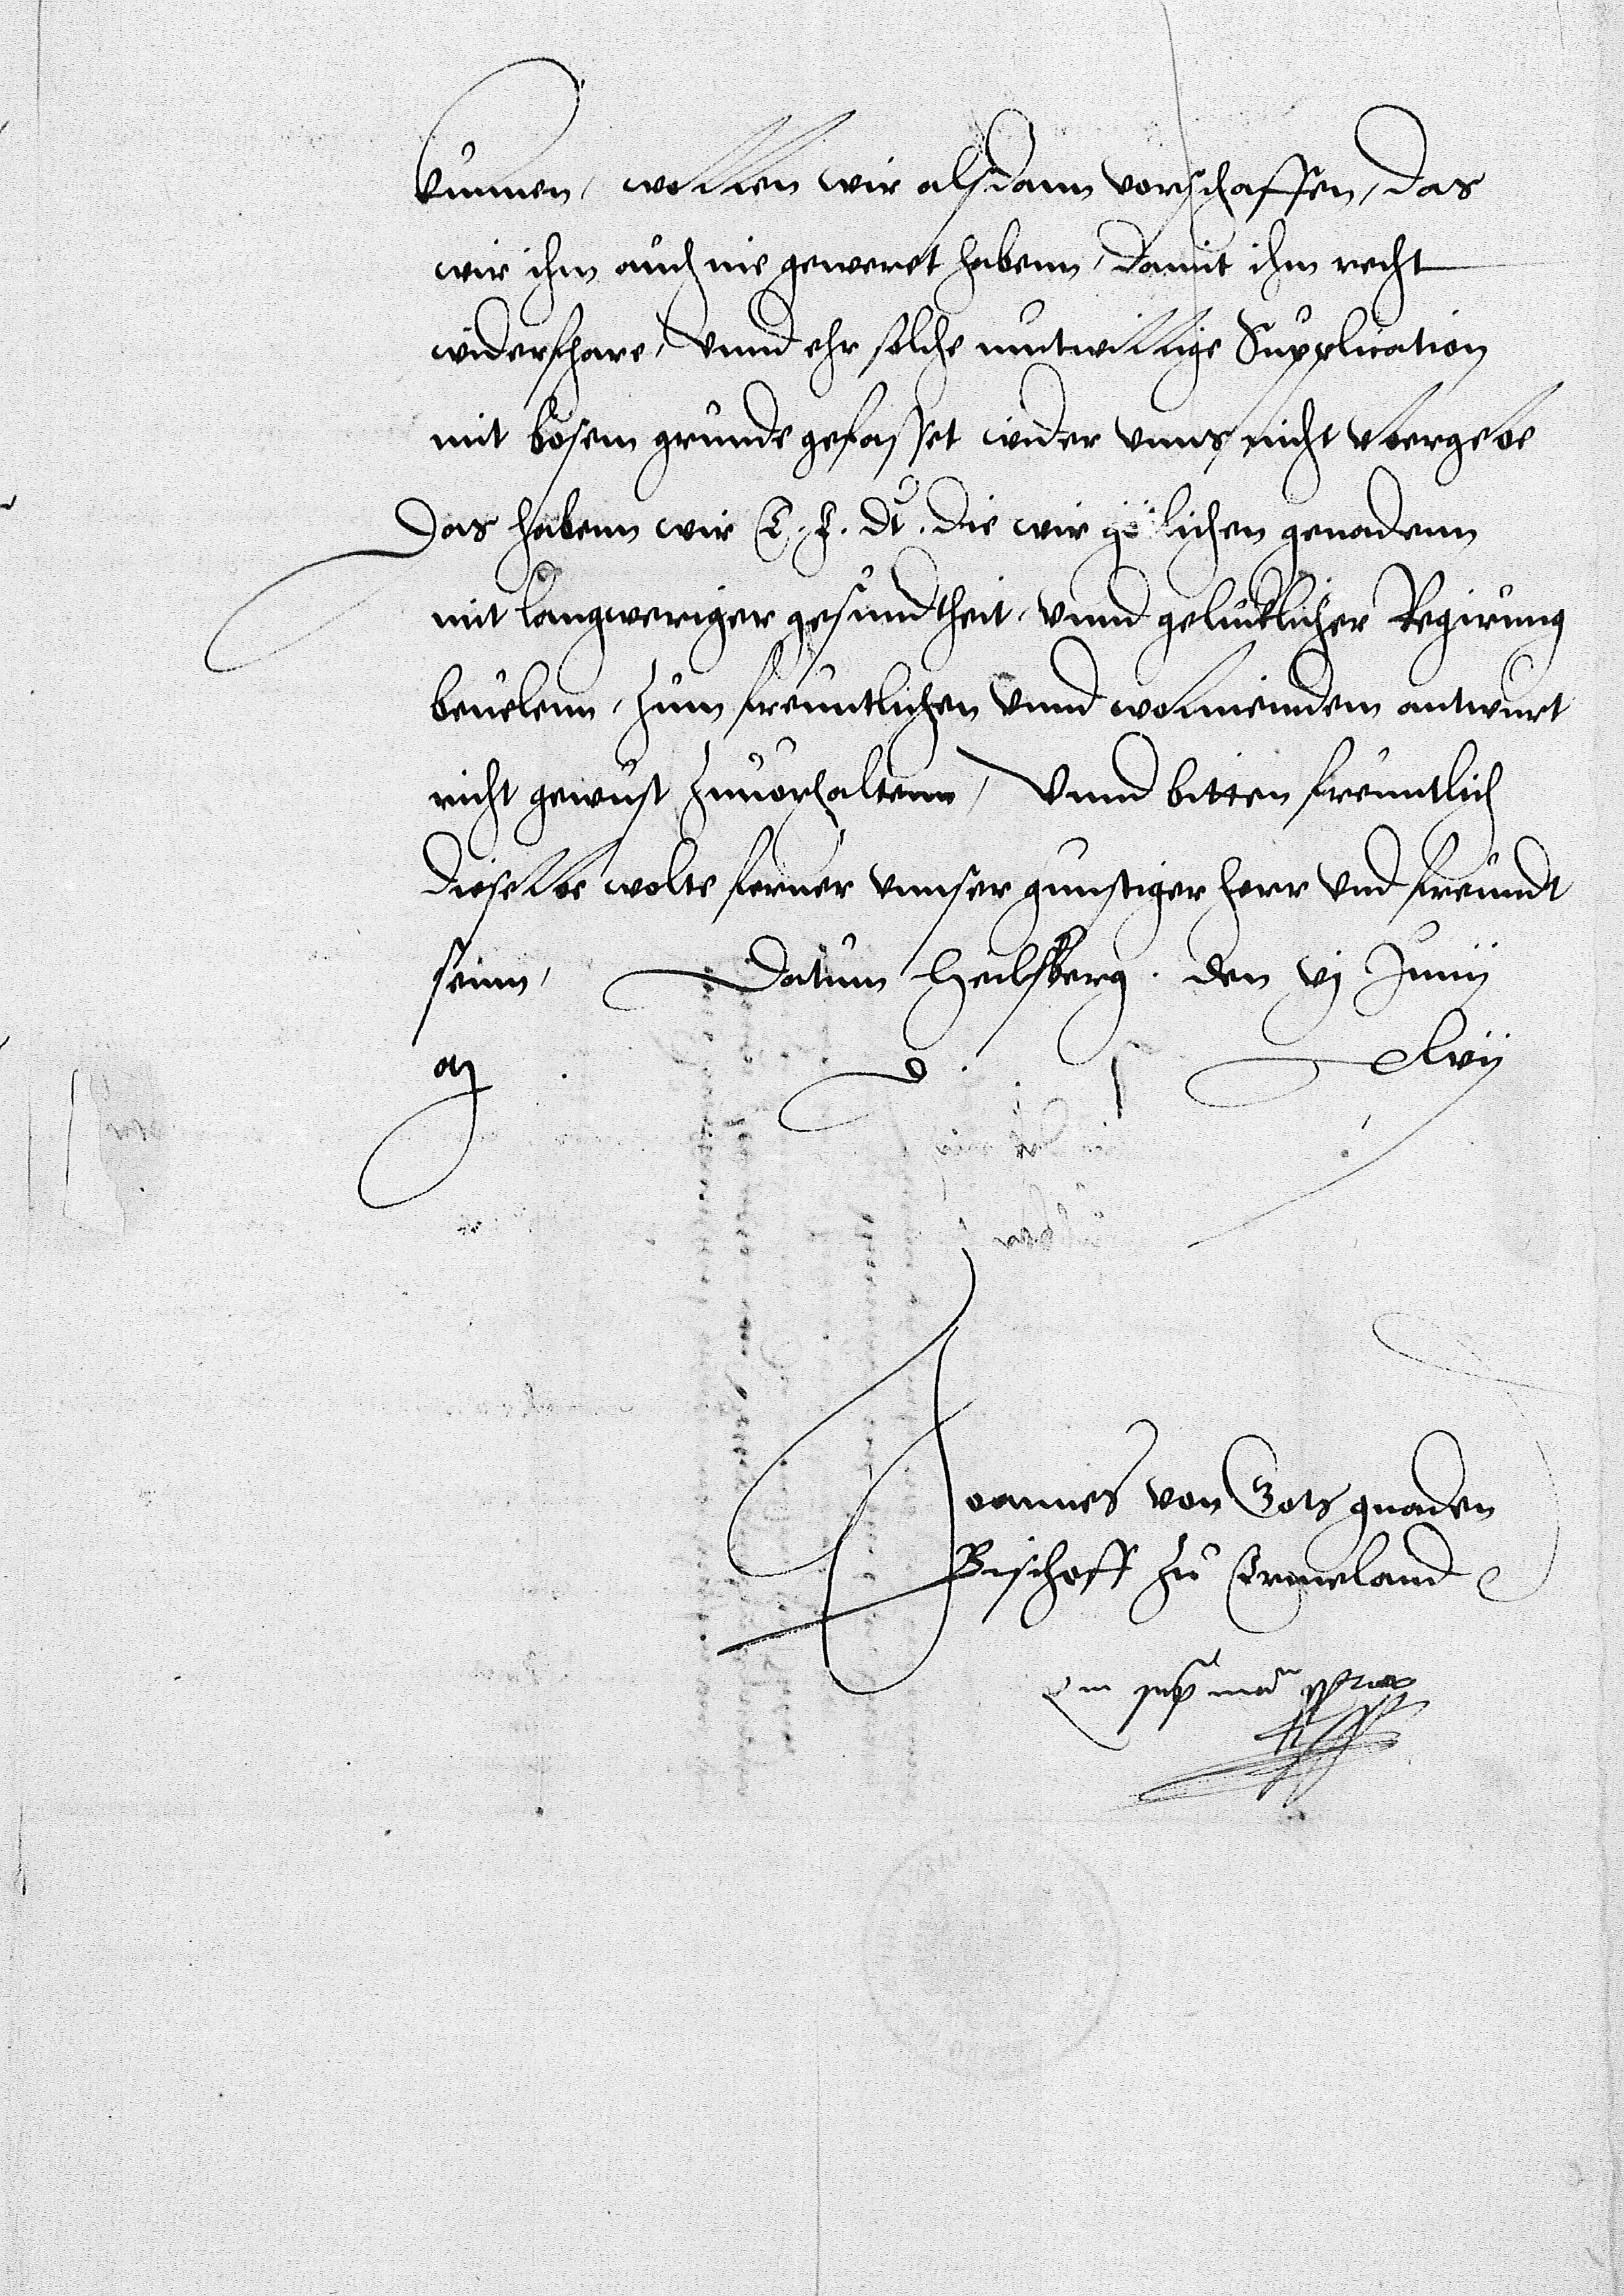 kunnen, wollen wir alsdann vorschaffen, das
wir ihm auch nie geweret habenn, damit ihm recht
widerfhare, Vnnd ehr solche mutwillige Supplication
mit bosem grunde gefasset wider vnns nicht vbergebe
Das habenn wir E. F. Dt. die wir gotlichen genadenn
mit langweriger gesundtheit, vnnd gelucklicher Regirung
beuelenn, zum freuntlichen vnnd wolmeindem antwurt
nicht gewust zuuorhaltenn, Vnnd bitten freuntlich
dieselbe wolte ferner vnnser gunstiger herr vnd freundt
seinn, Datum Heilsberg. den vj Junij
M. D. xlvij
Joannes von Gots gnaden
Bischoff zu Ermeland